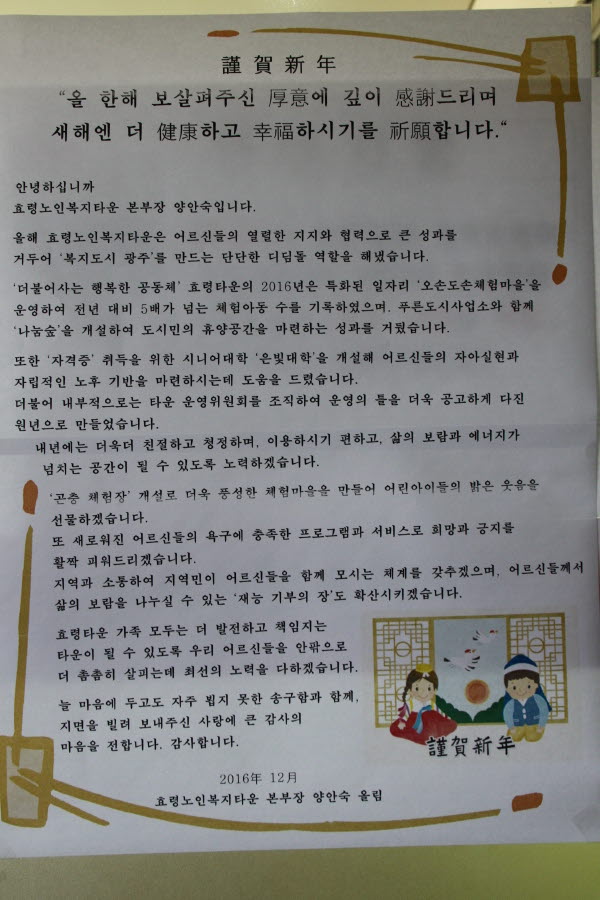 謹賀新年
"올 한해 보살펴주신 厚意에 깊이 感謝드리며
새해엔 더 健康하고 幸福하시기를 祈願합니다."
안녕하십니까
효령노인복지타운 본부장 양안숙입니다.
올해 효령노인복지타운은 어르신들의 열렬한 지지와 협력으로 큰 성과를
거두어 '복지도시 광주'를 만드는 단단한 디딤돌 역할을 해냈습니다.
'더불어사는 행복한 공동체' 효령타운의 2016년은 특화된 일자리 '오손도손체험마을'을
운영하여 전년 대비 5배가 넘는 체험아동 수를 기록하였으며, 푸른도시사업소와 함께
'나눔숲'을 개설하여 도시민의 휴양공간을 마련하는 성과를 거뒀습니다.
또한 '자격증' 취득을 위한 시니어대학 '은빛대학'을 개설해 어르신들의 자아실현과
자립적인 노후 기반을 마련하시는데 도움을 드렸습니다.
더불어 내부적으로는 타운 운영위원회를 조직하여 운영의 틀을 더욱 공고하게 다진
원년으로 만들었습니다.
내년에는 더욱더 친절하고 청정하며, 이용하시기 편하고, 삶의 보람과 에너지가
넘치는 공간이 될 수 있도록 노력하겠습니다.
'곤충 체험장' 개설로 더욱 풍성한 체험마을을 만들어 어린아이들의 밝은 웃음을
선물하겠습니다.
또 새로워진 어르신들의 욕구에 충족한 프로그램과 서비스로 희망과 긍지를
활짝 피워드리겠습니다.
지역과 소통하여 지역민이 어르신들을 함께 모시는 체계를 갖추겠으며, 어르신들께서
삶의 보람을 나누실 수 있는 '재능 기부의 장'도 확산시키겠습니다.
효령타운 가족 모두는 더 발전하고 책임지는
타운이 될 수 있도록 우리 어르신들을 안팎으로
더 촘촘히 살피는데 최선의 노력을 다하겠습니다.
늘 마음에 두고도 자주 뵙지 못한 송구함과 함께,
지면을 빌려 보내주신 사랑에 큰 감사의
마음을 전합니다. 감사합니다.
謹賀新年
2016年 12月
효령노인복지타운 본부장 양안숙 올림